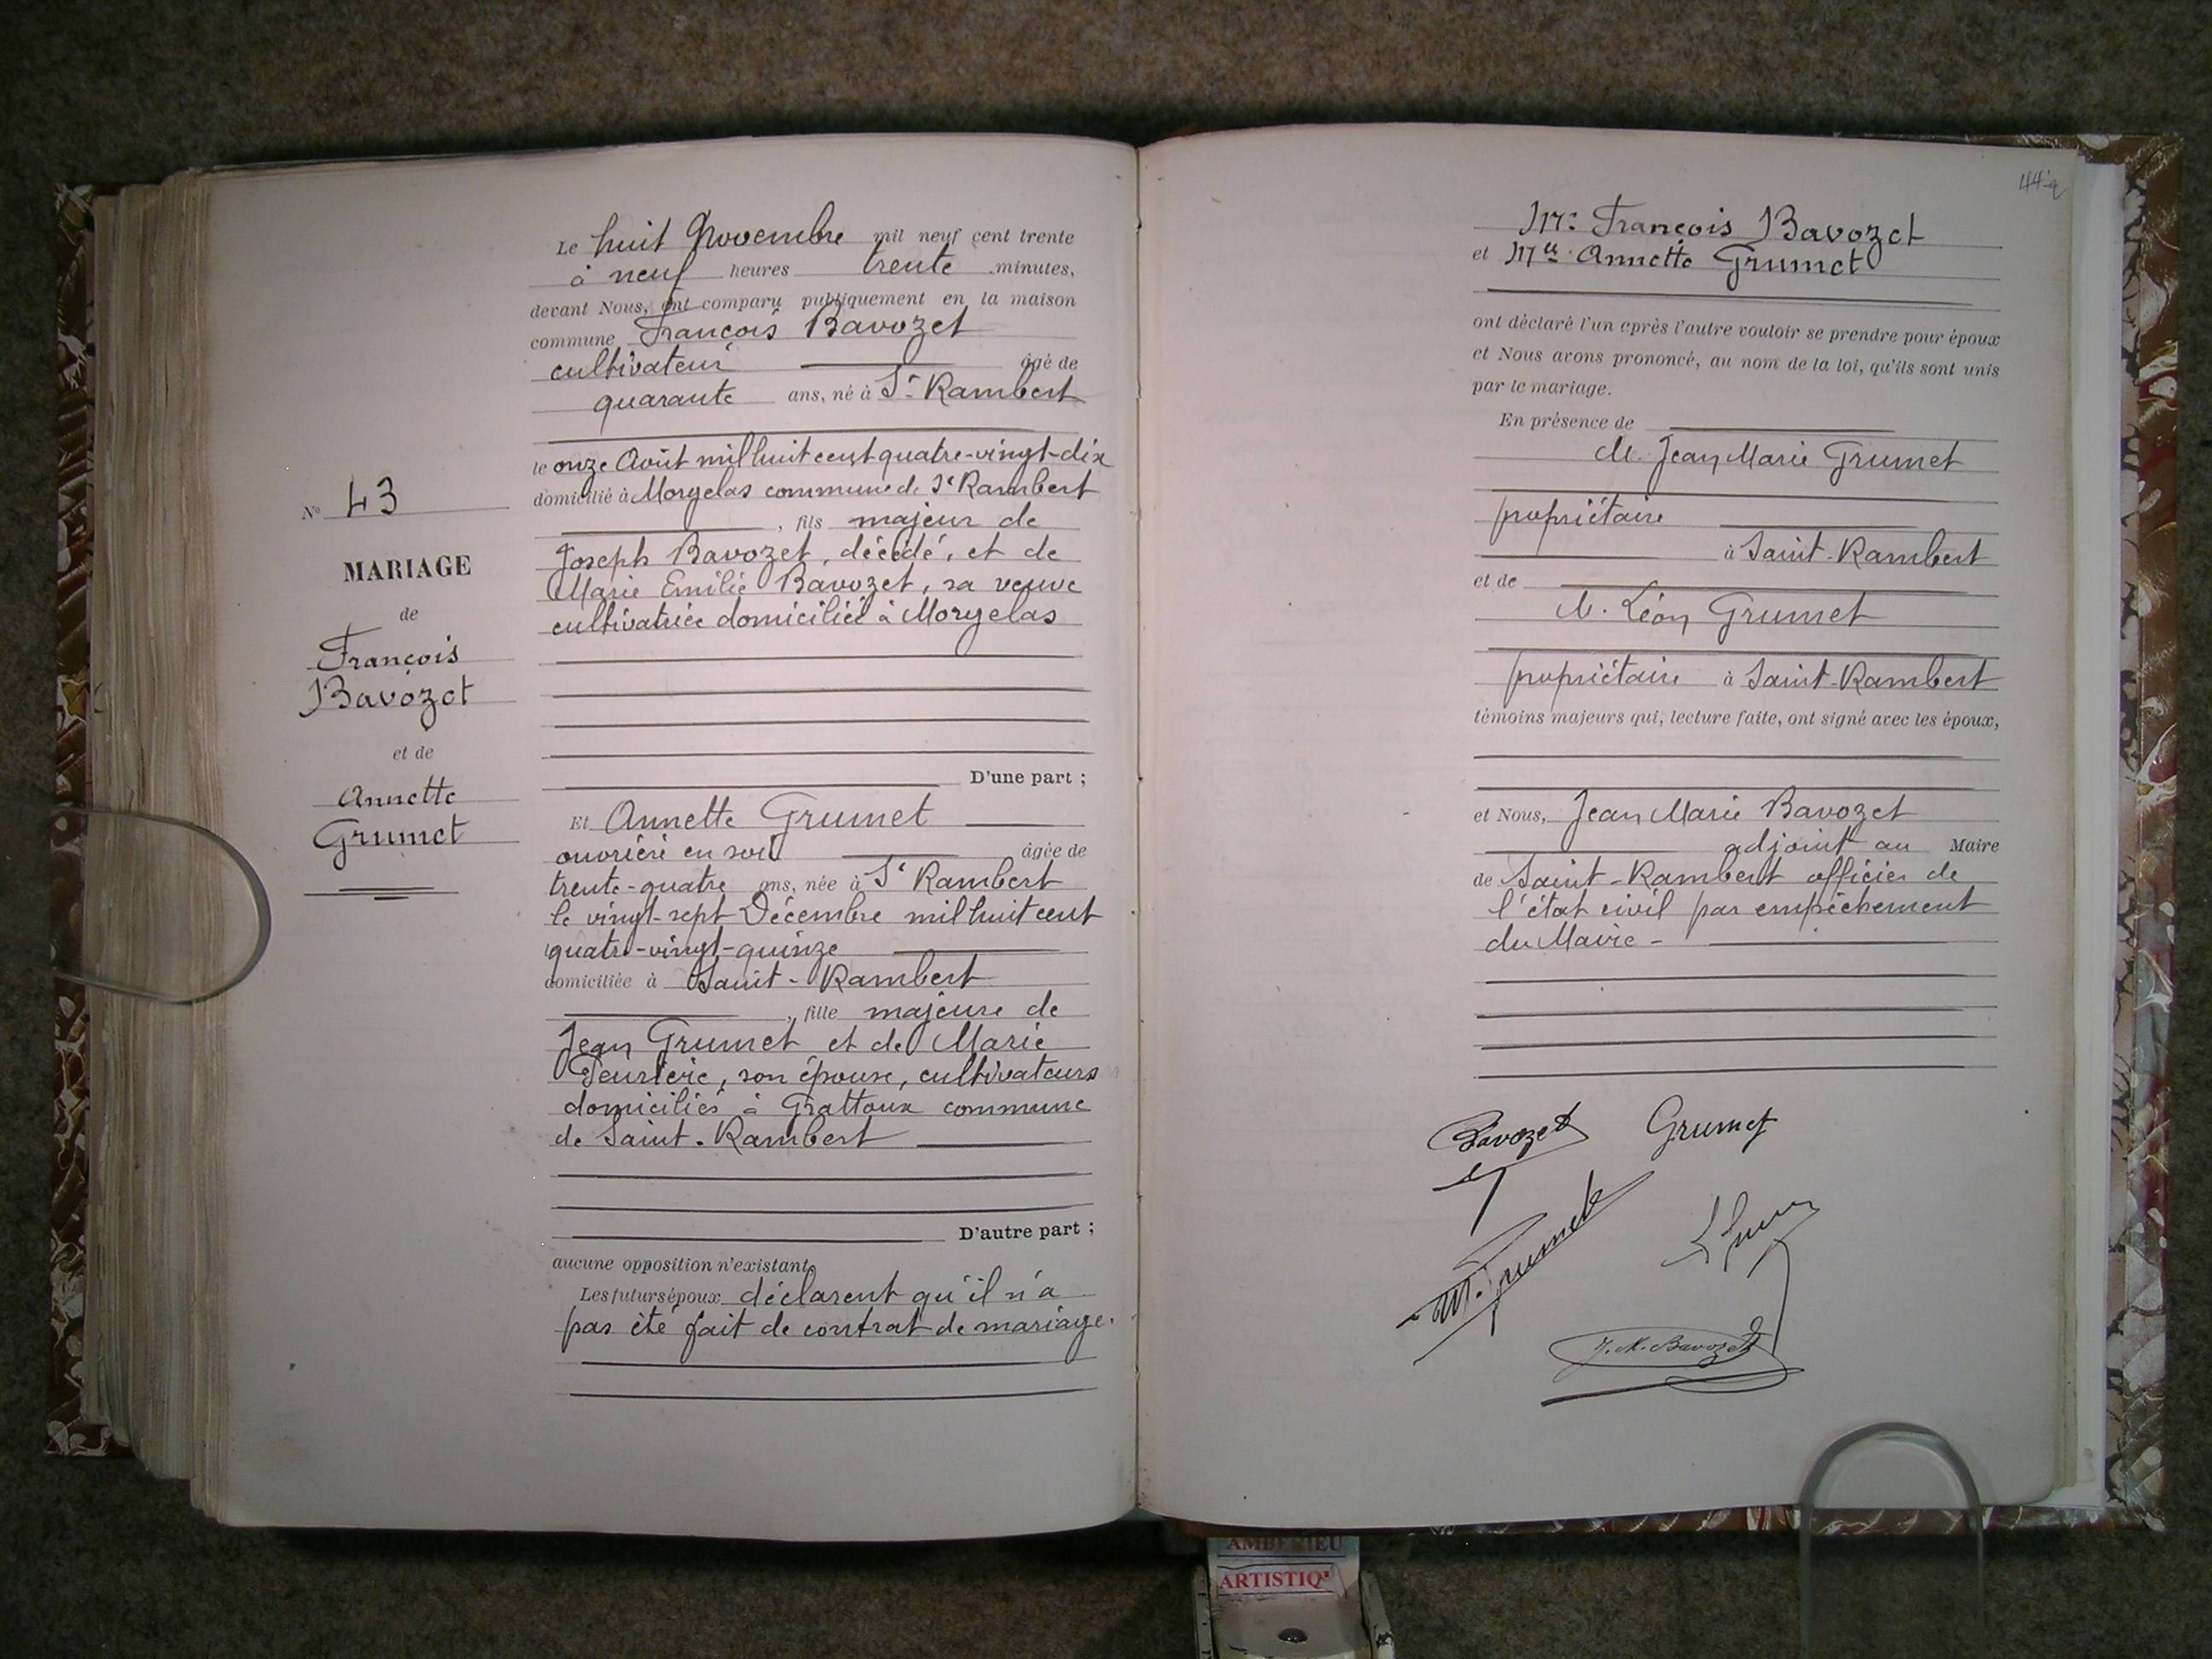 N° 43
MARIAGE
de
François
Bavozet
et de
Annette
Grumet
Le huit Novembre mil neuf cent trente
à neuf heures trente minutes,
devant Nous, ont comparu publiquement en la maison
commune François Bavozet
cultivateur âgé de
quarante ans, né à St Rambert
le onze Août mil huit cent quatre-vingt-dix
domicilié à Morgelas commune de St Rambert
, fils majeur de
Joseph Bavozet, décédé, et de
Marie Emilie Bavozet, sa veuve
cultivatrice domiciliée à Morgelas
D'une part ;
Et Annette Grumet
ouvrière en soie âgée de
trente-quatre ans, née à St Rambert
le vingt-sept Décembre mil huit cent
quatre-vingt-quinze
domiciliée à Saint-Rambert
, fille majeure de
Jean Grumet et de Marie
son épouse, cultivateurs
domiciliés à Grattoux commune
de Saint-Rambert
D'autre part ;
aucune opposition n'existant
Les futurs époux déclarent qu'il n'a
pas été fait de contrat de mariage.
44
Mr François Bavozet
et Mlle Annette Grumet
ont déclaré l'un après l'autre vouloir se prendre pour époux
et Nous avons prononcé, au nom de la loi, qu'ils sont unis
par le mariage.
En présence de
M. Jean Marie Grumet
propriétaire
à Saint-Rambert
et de
M. Léon Grumet
propriétaire à Saint-Rambert
témoins majeurs qui, lecture faite, ont signé avec les époux,
et Nous, Jean Marie Bavozet
adjoint au Maire
de Saint-Rambert officier de
l'état civil par empêchement
du Maire -
Bavozet Grumet
M. Grumet
J. M. Bavozet
AMBERIEU
ARTISTIQ